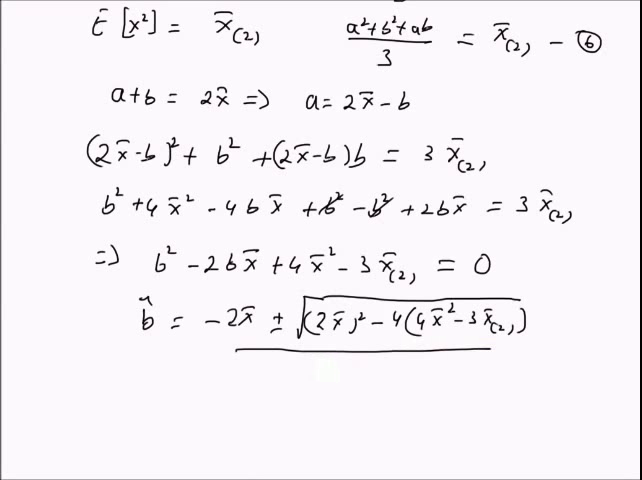 E[x²] = x̄₍₂₎   (a²+b²+ab)/3 = x̄₍₂₎ – ⑥
a+b = 2x̄ => a = 2x̄ – b
(2x̄-b)² + b² + (2x̄-b)b = 3 x̄₍₂₎
b² + 4x̄² - 4bx̄ + b² - b² + 2bx̄ = 3 x̄₍₂₎
=> b² - 2bx̄ + 4x̄² - 3x̄₍₂₎ = 0
b̂ = -2x̄ ± √((2x̄)² - 4(4x̄² - 3x̄₍₂₎)